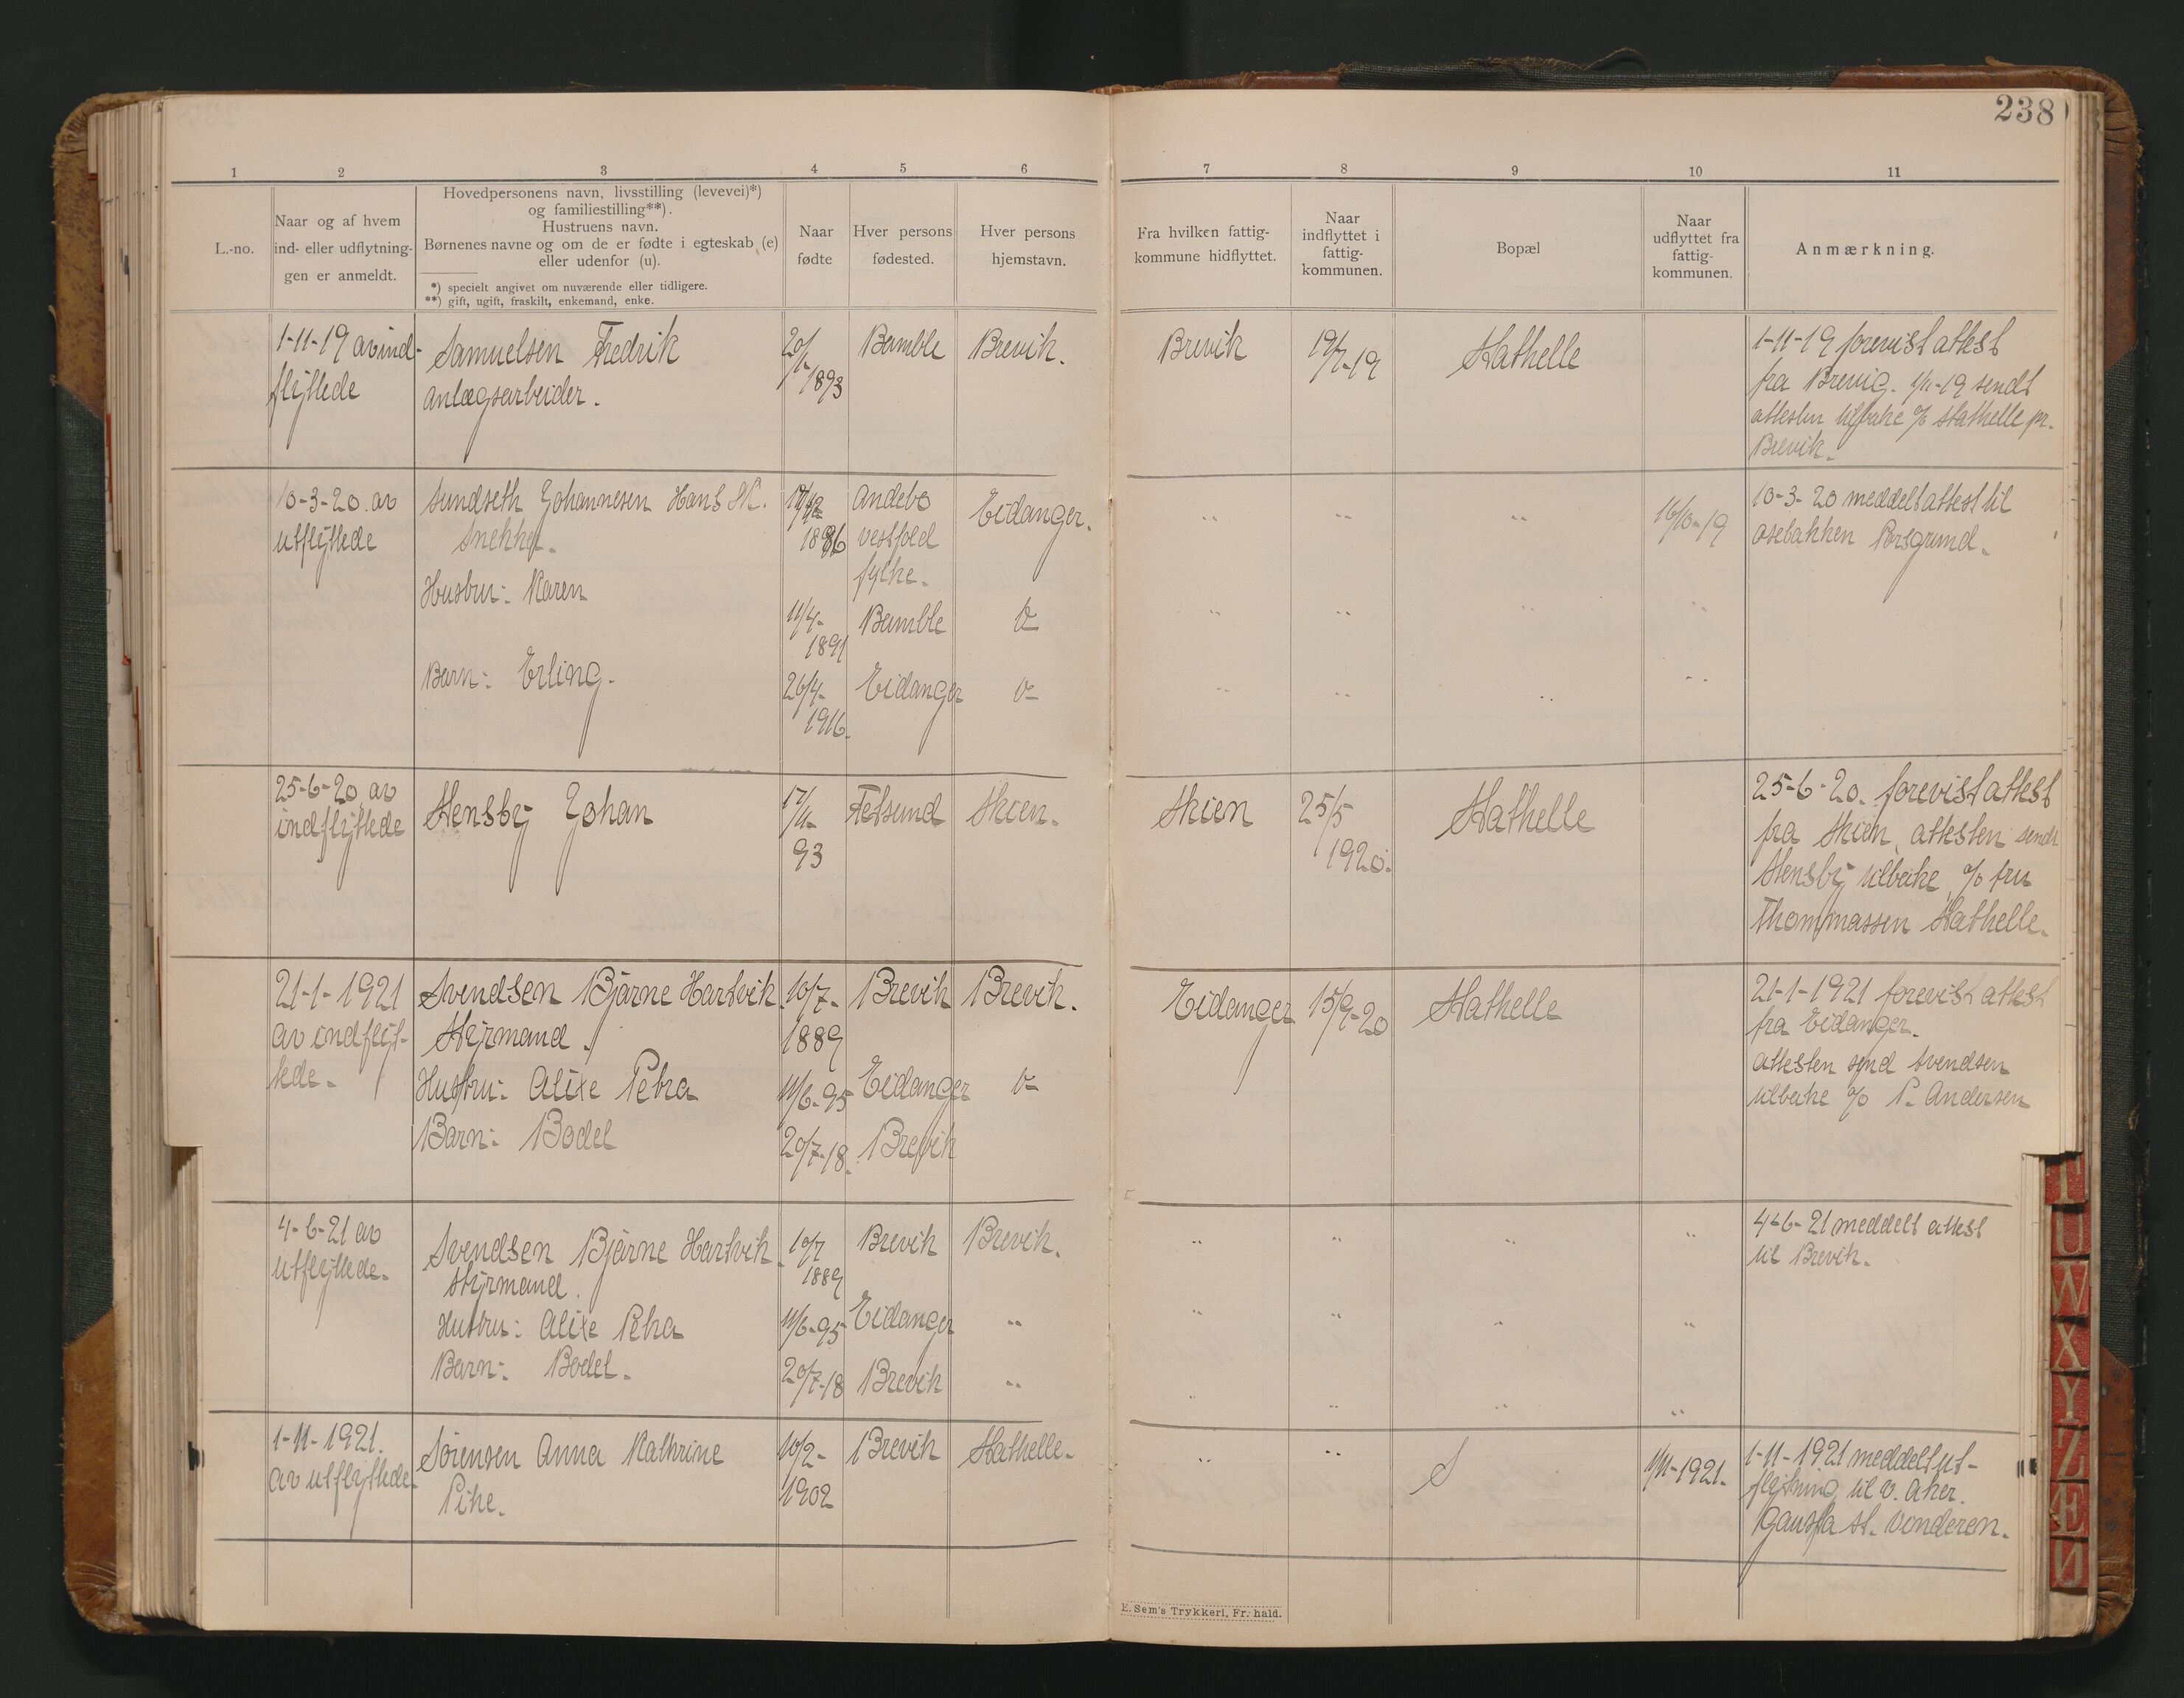 238
1 2 3 4 5 6 7 8 9 10 11
L.-no.
Naar og af hvem
ind- eller udflytnin-
gen er anmeldt.
Hovedpersonens navn, livsstilling (levevei)*)
og familiestilling**).
Hustruens navn.
Børnenes navne og om de er fødte i egteskab (e)
eller udenfor (u).
*) specielt angivet om nuværende eller tidligere.
**) gift, ugift, fraskilt, enkemand, enke.
Naar
fødte
Hver persons
fødested.
Hver persons
hjemstavn.
Fra hvilken fattig-
kommune hidflyttet.
Naar
indflyttet i
fattig-
kommunen.
Bopæl
Naar
udflyttet fra
fattig-
kommunen.
Anmærkning.
1-11-19 av ind-
flyttede
Samuelsen Fredrik
anlægsarbeider.
1893
Bamble
Brevik.
Brevik
19/7-19
Stathelle
1-11-19 forevist attest
fra Brevig. 1/11-19 sendt
attesten tilbake c/o Stathelle pr.
Brevik.
10-3-20. av
utflyttede
Sundseth Johannesen Hans M.
Snekker.
1886
Andebo
Vestfold
fylke.
Eidanger.
" " "
16/10-19
10-3-20 meddelt attest til
Osebakken Porsgrund.
Hustru: Karen
11/4-
1891
Bamble
" " " "
Barn: Erling.
26/4-
1916.
Eidanger
" " " "
25-6-20, av
indflyttede
Stensby Johan
17/11
93
Fetsund
Skien.
Skien
25/5
1920.
Stathelle
25-6-20. forevist attest
fra Skien, attesten sendt
Stensby tilbake c/o fru
Thommassen Stathelle.
21-1-1921
av indflyt-
tede-
Svendsen Bjarne Hartvik.
Styrmand.
10/7-
1889
Brevik
Brevik.
Eidanger
15/9-20
Stathelle
21-1-1921 forevist attest
fra Eidanger.
Attesten send Svendsen
tilbake c/o P. Andersen
Hustru: Alise Petra
11/6-95
Eidanger
Barn: Bodel
20/7-18.
Brevik
4-6-21 av
utflyttede-
Svendsen Bjarne Hartvik.
Styrmand.
10/7
1889
Brevik
Brevik.
" " " "
4-6-21 meddelt attest
til Brevik.
Hustru: Alise Petra
11/6-95
Eidanger
" " " " "
Barn: Bodel.
20/7-18
Brevik
" " " " "
1-11-1921.
av utflyttede.
Sörensen Anna Kathrine
Pike.
10/2-
1902
Brevik
Stathelle.
" "
S
1/11-1921.
1-11-1921 meddelt ut-
flytning til V. Aker.
Gausta st. Vinderen.
E. Sem's Trykkeri, Fr. hald.
T
U
W
X
Y
Z
Æ